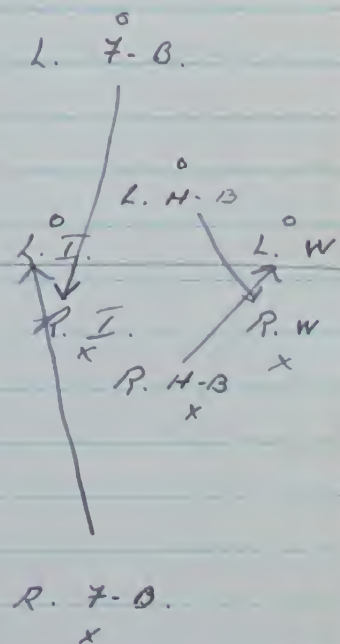 o
L. F-B.
o
L. H-B
o
L. I.
o
L. W
R. I.
x
R. W
x
R. H-B
x
R. F-B.
x